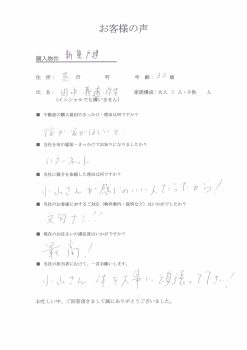 お客様の声
購入物件 新築戸建
住 所: 呉 市 町 年 齢: 32 歳
氏 名: 田中 家族構成:大人 2 人・子供 人
(イニシャルでも構いません)
■ 不動産の購入検討のきっかけ・理由は何ですか?
家が欲しいと…
■ 当社を何の媒体・きっかけでお知りになりましたか?
インターネット
■ 当社に仲介を依頼した理由は何ですか?
小山さんが感じのいい人だったから!
■ 当社のお客様に対するご対応(物件案内・説明など)はいかがでしたか?
文句ナシ!!
■ 現在のお住まいの満足度はいかがですか?
最高!
■ 当社の担当者にむけて、一言お願いします。
小山さん 体を大事に頑張って下さい!
お忙しい中、ご回答頂きまして誠にありがとうございました。